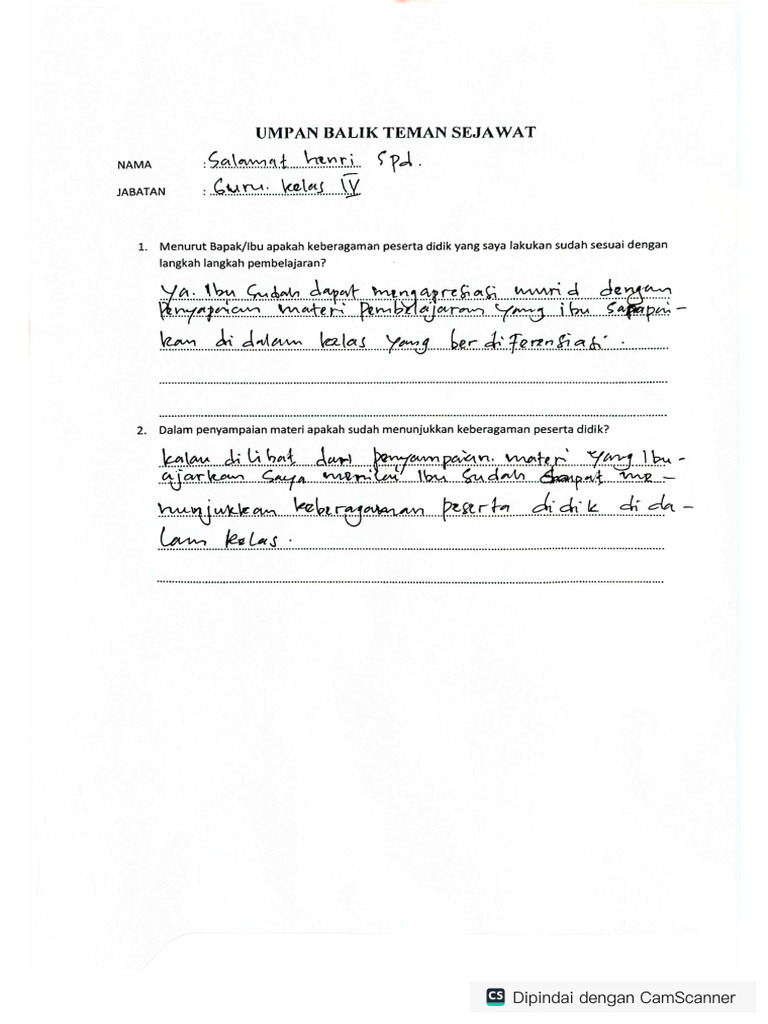 UMPAN BALIK TEMAN SEJAWAT
NAMA : Salamat henri Spd.
JABATAN : Guru. kelas IV
1. Menurut Bapak/Ibu apakah keberagaman peserta didik yang saya lakukan sudah sesuai dengan
langkah langkah pembelajaran?
Ya. Ibu sudah dapat mengapresiasi murid dengan
Penyapaian materi pembelajaran yang ibu
kan di dalam kelas yang berdiferensiasi.
2. Dalam penyampaian materi apakah sudah menunjukkan keberagaman peserta didik?
kalau dilihat dari penyampaian. materi yang Ibu-
ajarkan saya menilai Ibu sudah me-
nunjukkan keberagaman peserta didik di da-
lam kelas.
CS Dipindai dengan CamScanner